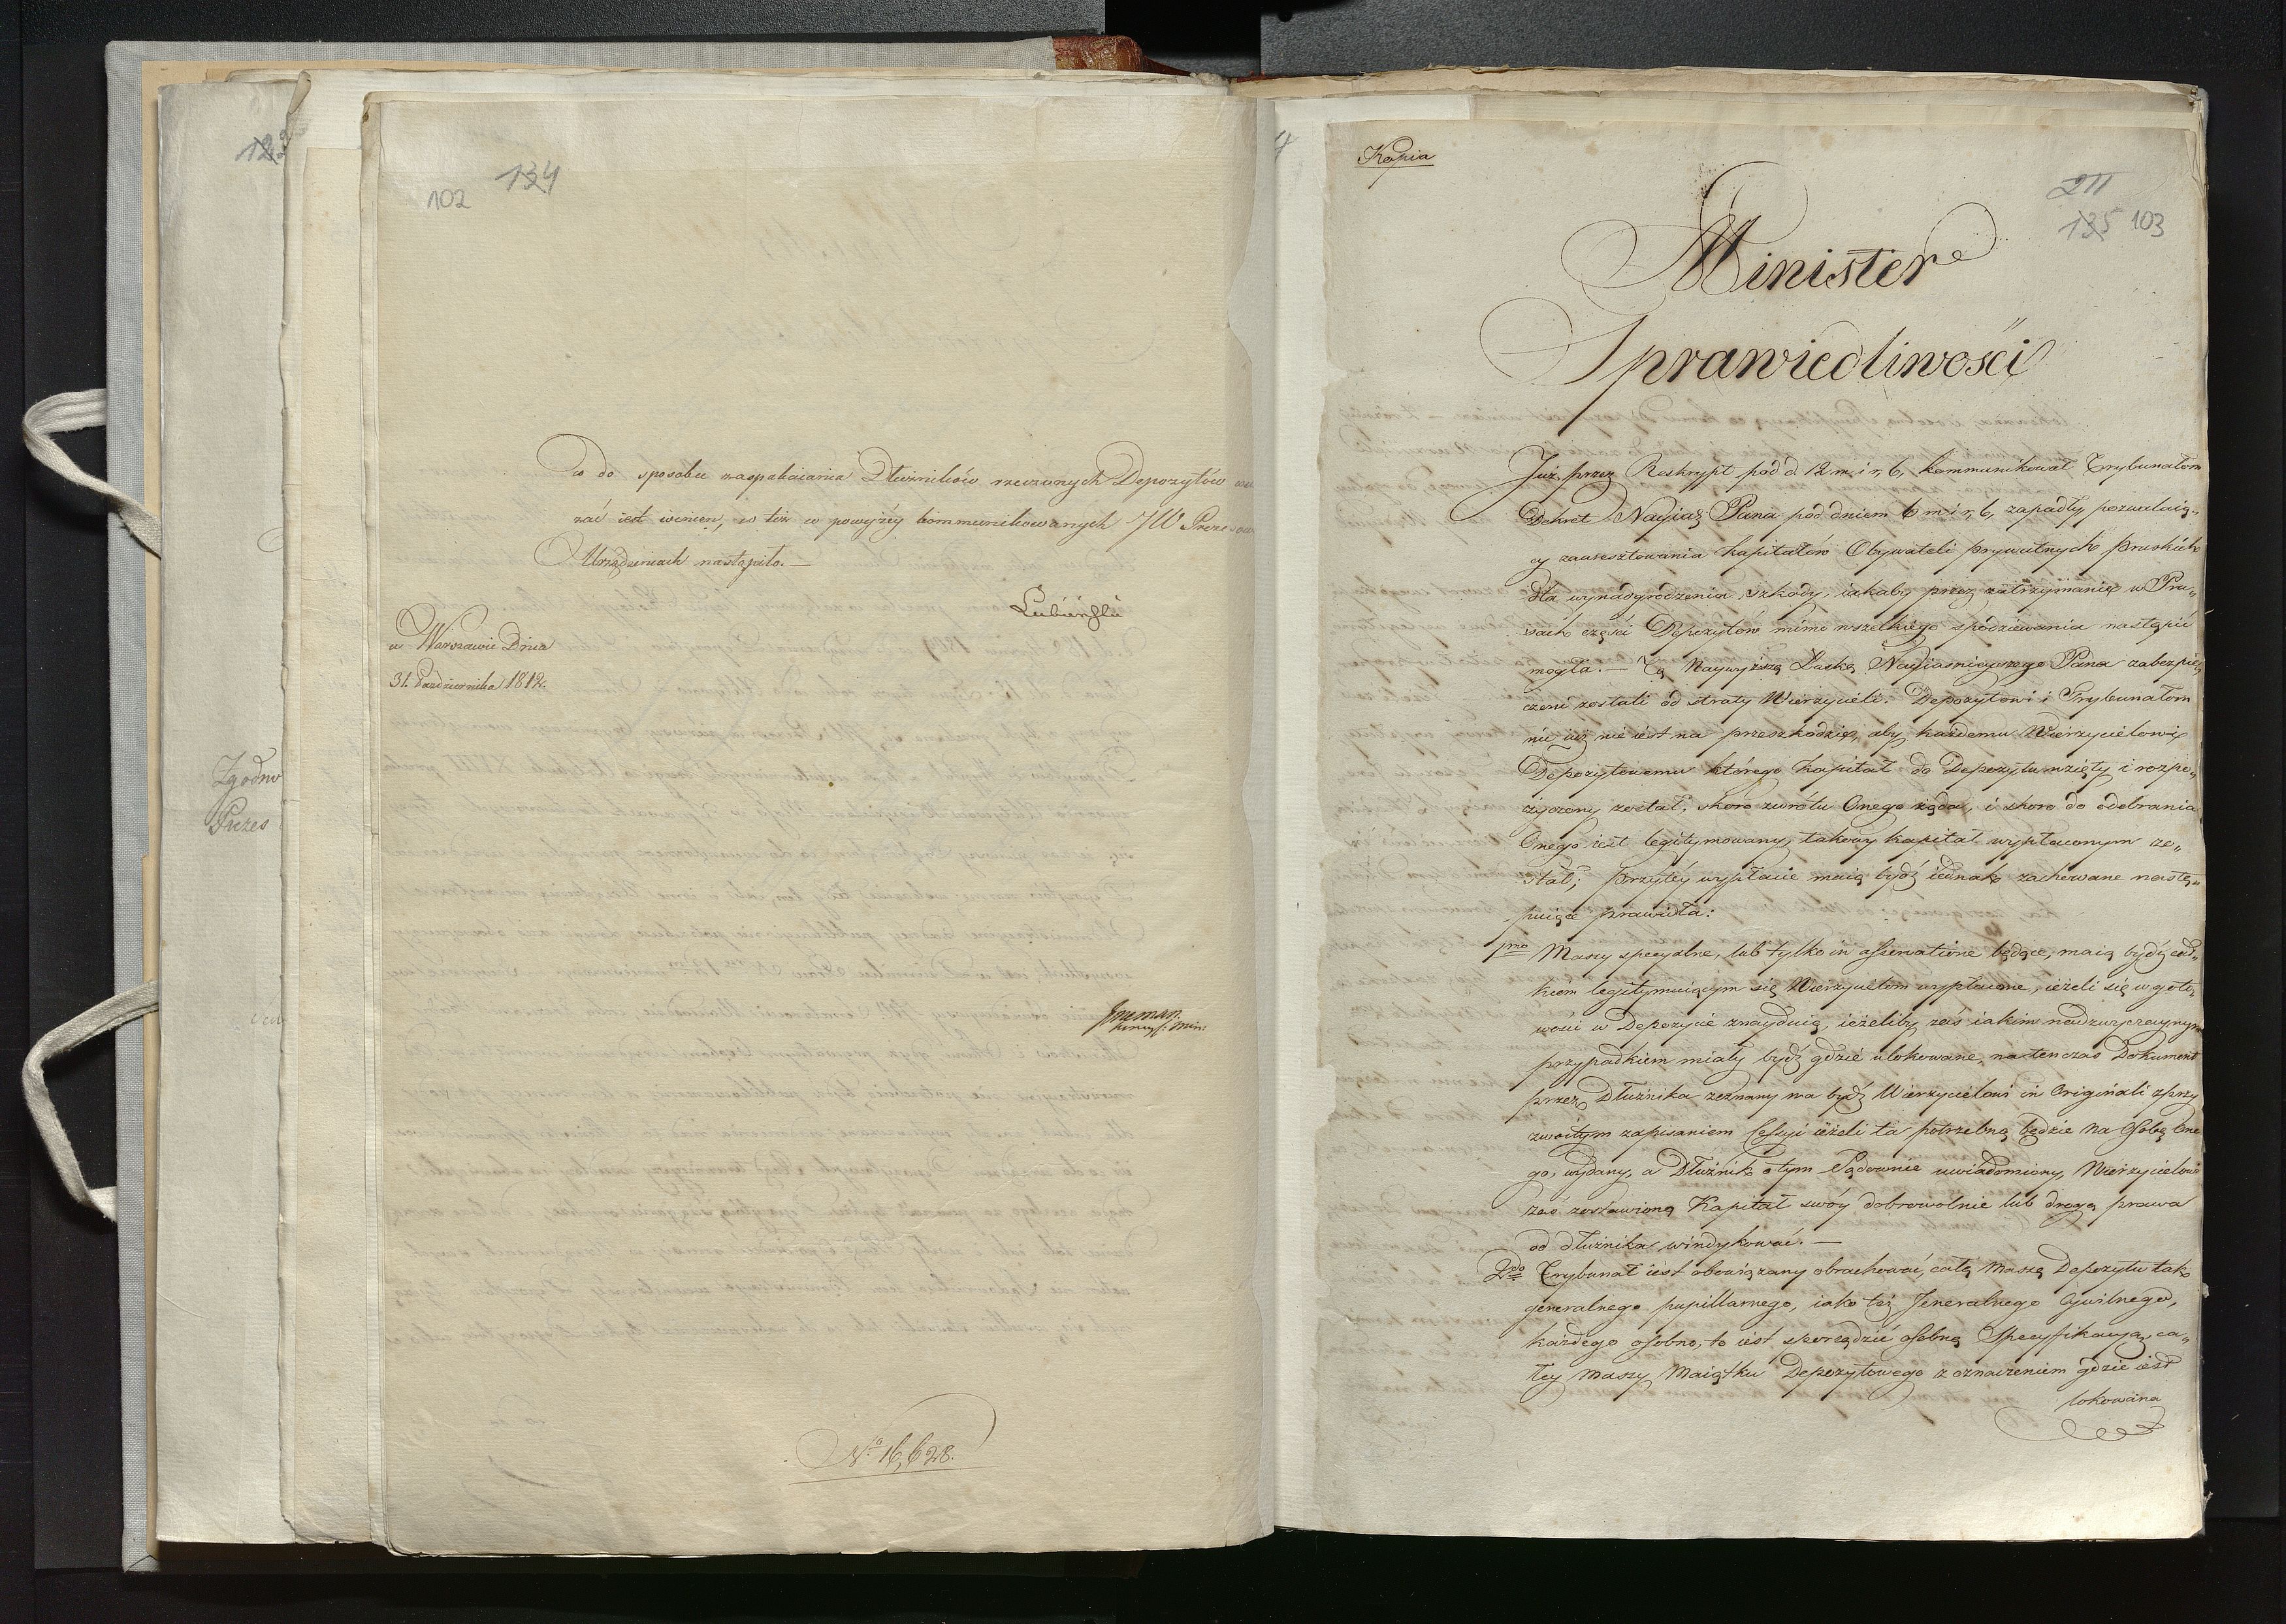 123
Zgodno
Prezes
102
134
co do sposobu zaspakaiania Dłużników rzeczonych Depozytów
zać iest winien, co też w powyżéy kommunikowanych JW Preze
Urządzeniach nastąpiło. —
Lubieński
w Warszawie Dnia
31. Października 1812.
No 16,628.
Kopia
211
135 103
Minister
Sprawiedliwości
Już przez Reskrypt pód d 12 m. i r, b, kommunikował Trybunałom
Dekret Nayiaś Pana pod dniem 6 m i r, b, zapadły pozwalaią„
cy zaaresztowania kapitałów Obywateli prywatnych pruskich
dla wynadgrodzenia szkody, iakaby przez zatrzymanie w Pru„
sach części Depozytów mimo wszelkiego spodziewania nastąpić
mogła. — Tą Naywyższą Łaską Nayiaśnieyszego Pana zabezpie„
czeni zostali od straty Wierzycieli Depozytowi i Trybunałom
nic iuż nie iest na przeszkodzie, aby każdemu Wierzycielowi
Depozytowemu którego kapitał do Depozytu wzięty i rozpo„
życzony został, skoro zwrótu Onego żąda, i skoro do odebrania
Onego iest legitymowany, takowy kapitał wypłaconym zo„
stał; przytéy wypłacie maią bydź iednak zachowane nastę„
puiące prawidła:
1mo Massy specyalne, lub tylko in asservatione będące, maią bydź
kiem legitymuiącym się Wierzycielom wypłacone, ieżeli się w goto„
wości w Depozycie znayduią, ieżeliby zaś iakim nadzwyczaynym
przypadkiem miały bydź gdzie ulokowane, na tenczas Dokument
przez Dłużnika zeznany ma bydź Wierzycielowi in Originali z przy
zwoitym zapisaniem Cessyi ieżeli ta potrzebną będzie na Osobę One
go, wydany, a Dłużnik o tym Sądownie uwiadomiony, Wierzycielowi
zaś zostawioną Kapitał swóy dobrowolnie lub drogą prawa
od dłużnika windykować. —
2do Trybunał iest obowiązany obrachować, całą Massę Depozytu tak
generalnego pupillarnego, iako też Jeneralnego Cywilnego,
każdego osobno, to iest sporządzić osobną Specyfikacyą ca„
łey massy Maiątku Depozytowego z oznaczeniem gdzie iest
lokowana